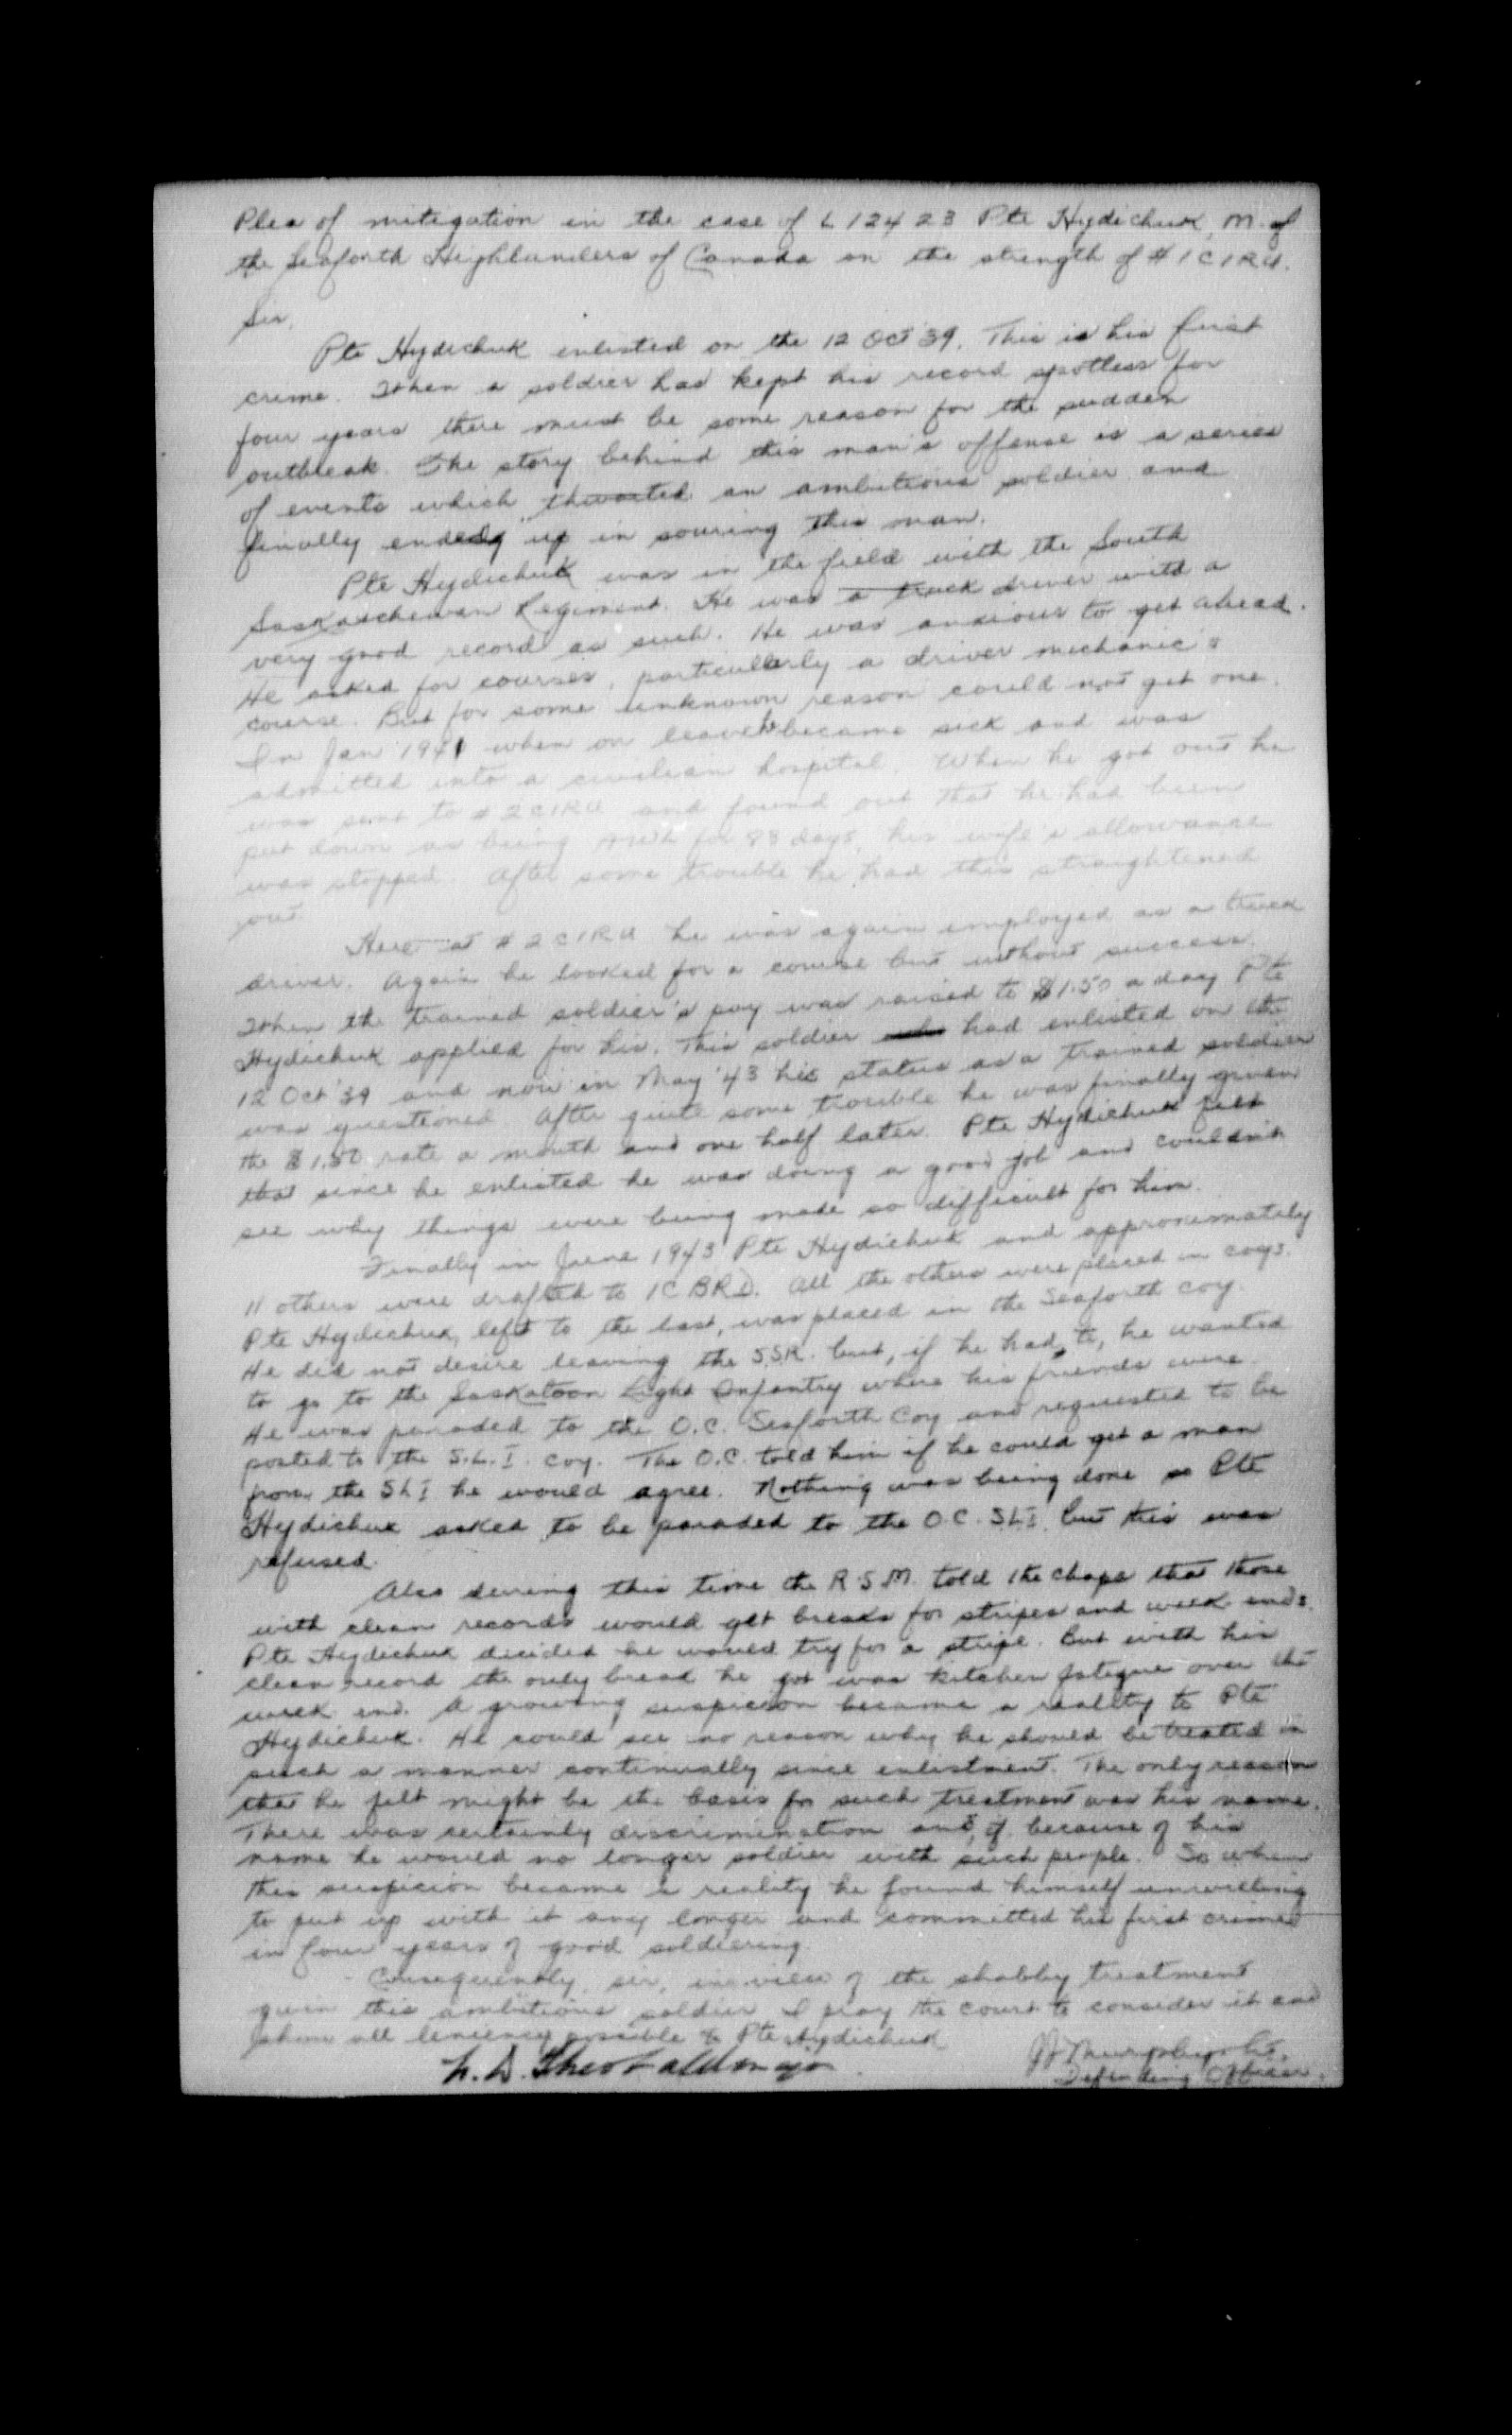 Plea of mitigation in the case of L 12423 Pte Hydichuk, M. of
the Seaforth Highlanders of Canada on the strength of # 1 C I R U.
Sir,
Pte Hydichuk enlisted on the 12 Oct '39. This is his first
crime. When a soldier has kept his record spotless for
four years there must be some reason for the sudden
outbreak. The story behind this man's offense is a series
of events which thwarted an ambitious soldier and
finally ended up in souring this man.
Pte Hydichuk was in the field with the South
Saskatchewan Regiment. He was a truck driver with a
very good record as such. He was anxious to get ahead.
He asked for courses, particularly a driver mechanic's
course. But for some unknown reason could not get one.
In Jan 1941 when on leave he became sick and was
admitted into a civilian hospital. When he got out he
was sent to # 2 CIRU and found out that he had been
put down as being AWL for 88 days, his wife's allowance
was stopped. After some trouble he had this straightened
out.
Here at # 2 CIRU he was again employed as a truck
driver. Again he looked for a course but without success.
When the trained soldier's pay was raised to $1.50 a day Pte
Hydichuk applied for his. This soldier had enlisted on the
12 Oct '39 and now in May '43 his status as a trained soldier
was questioned. After quite some trouble he was finally given
the $1.50 rate a month and one half later. Pte Hydichuk felt
that since he enlisted he was doing a good job and couldn't
see why things were being made so difficult for him.
Finally in June 1943 Pte Hydichuk and approximately
11 others were drafted to 1 C BRD. All the others were placed in coys.
Pte Hydichuk, left to the last, was placed in the Seaforth coy.
He did not desire leaving the S.S.R. but, if he had to, he wanted
to go to the Saskatoon Light Infantry where his friends were.
He was paraded to the O.C. Seaforth Coy and requested to be
posted to the S.L.I. coy. The O.C. told him if he could get a man
from the SLI he would agree. Nothing was being done so Pte
Hydichuk asked to be paraded to the O.C. SLI but this was
refused.
Also during this time the R.S.M. told the chaps that those
with clean records would get breaks for stripes and week ends.
Pte Hydichuk decided he would try for a stripe. But with his
clean record the only break he got was kitchen fatigue over the
week end. A growing suspicion became a reality to Pte
Hydichuk. He could see no reason why he should be treated in
such a manner continually since enlistment. The only reason
that he felt might be the basis for such treatment was his name.
There was certainly discrimination and, if because of his
name he would no longer soldier with such people. So when
this suspicion became a reality he found himself unwilling
to put up with it any longer and committed his first crime
in four years of good soldiering.
Consequently, sir, in view of the shabby treatment
given this ambitious soldier I pray the court to consider it and
show all leniency possible to Pte Hydichuk
Defending Officer.